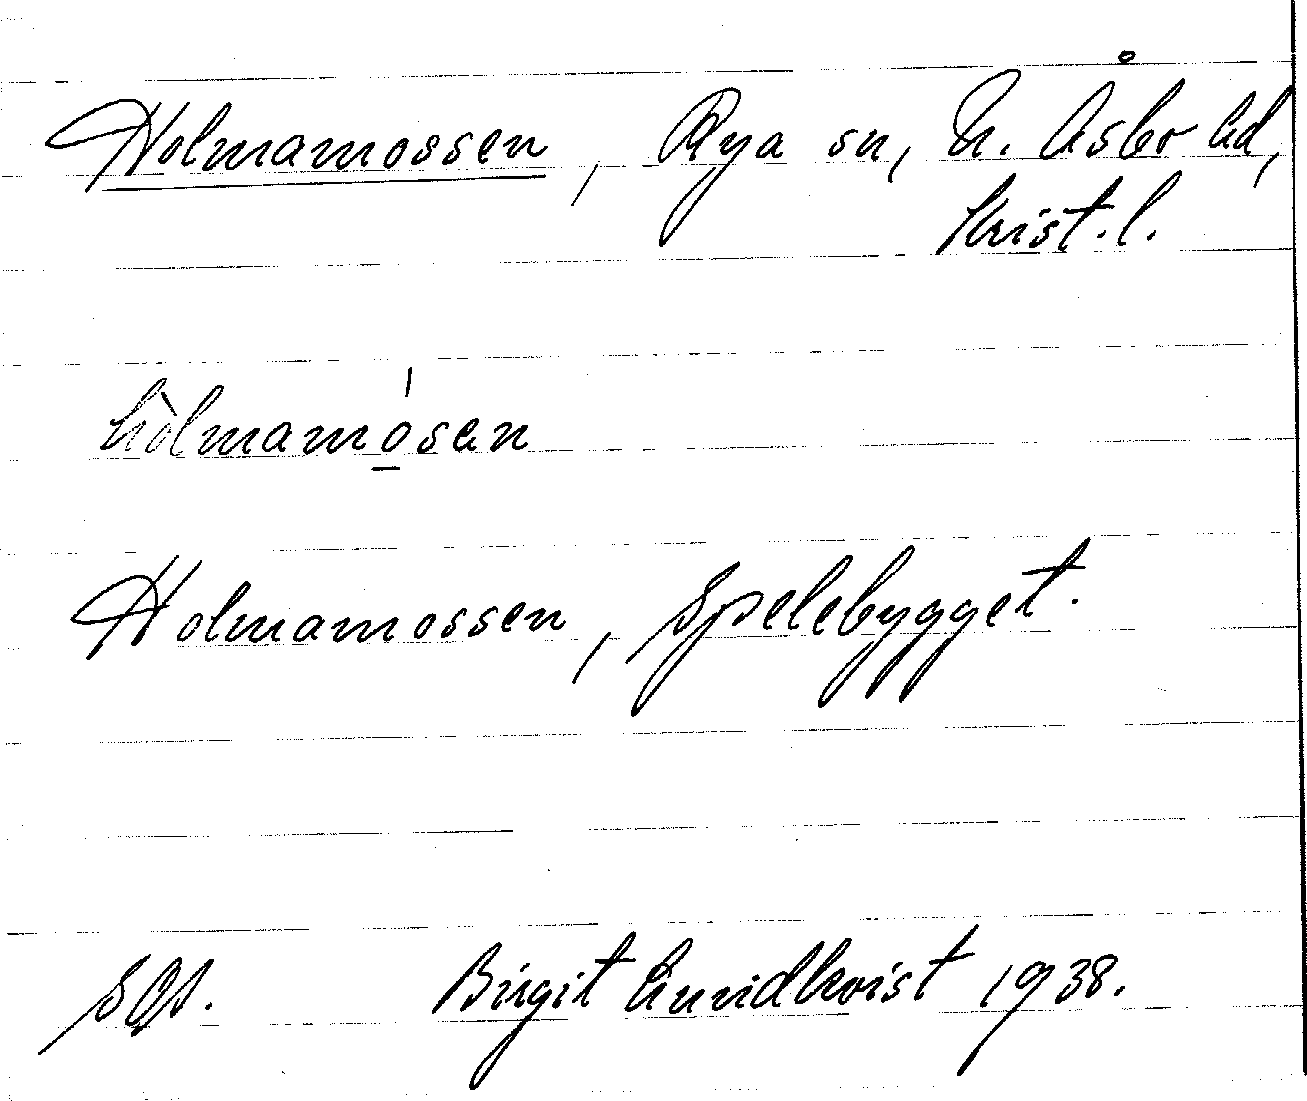 Holmamossen, Rya sn, N. Åsbo hd,
Krist. l.
hòlmamósen
Holmamossen, Spelebygget.
Birgit Lundkvist 1938.